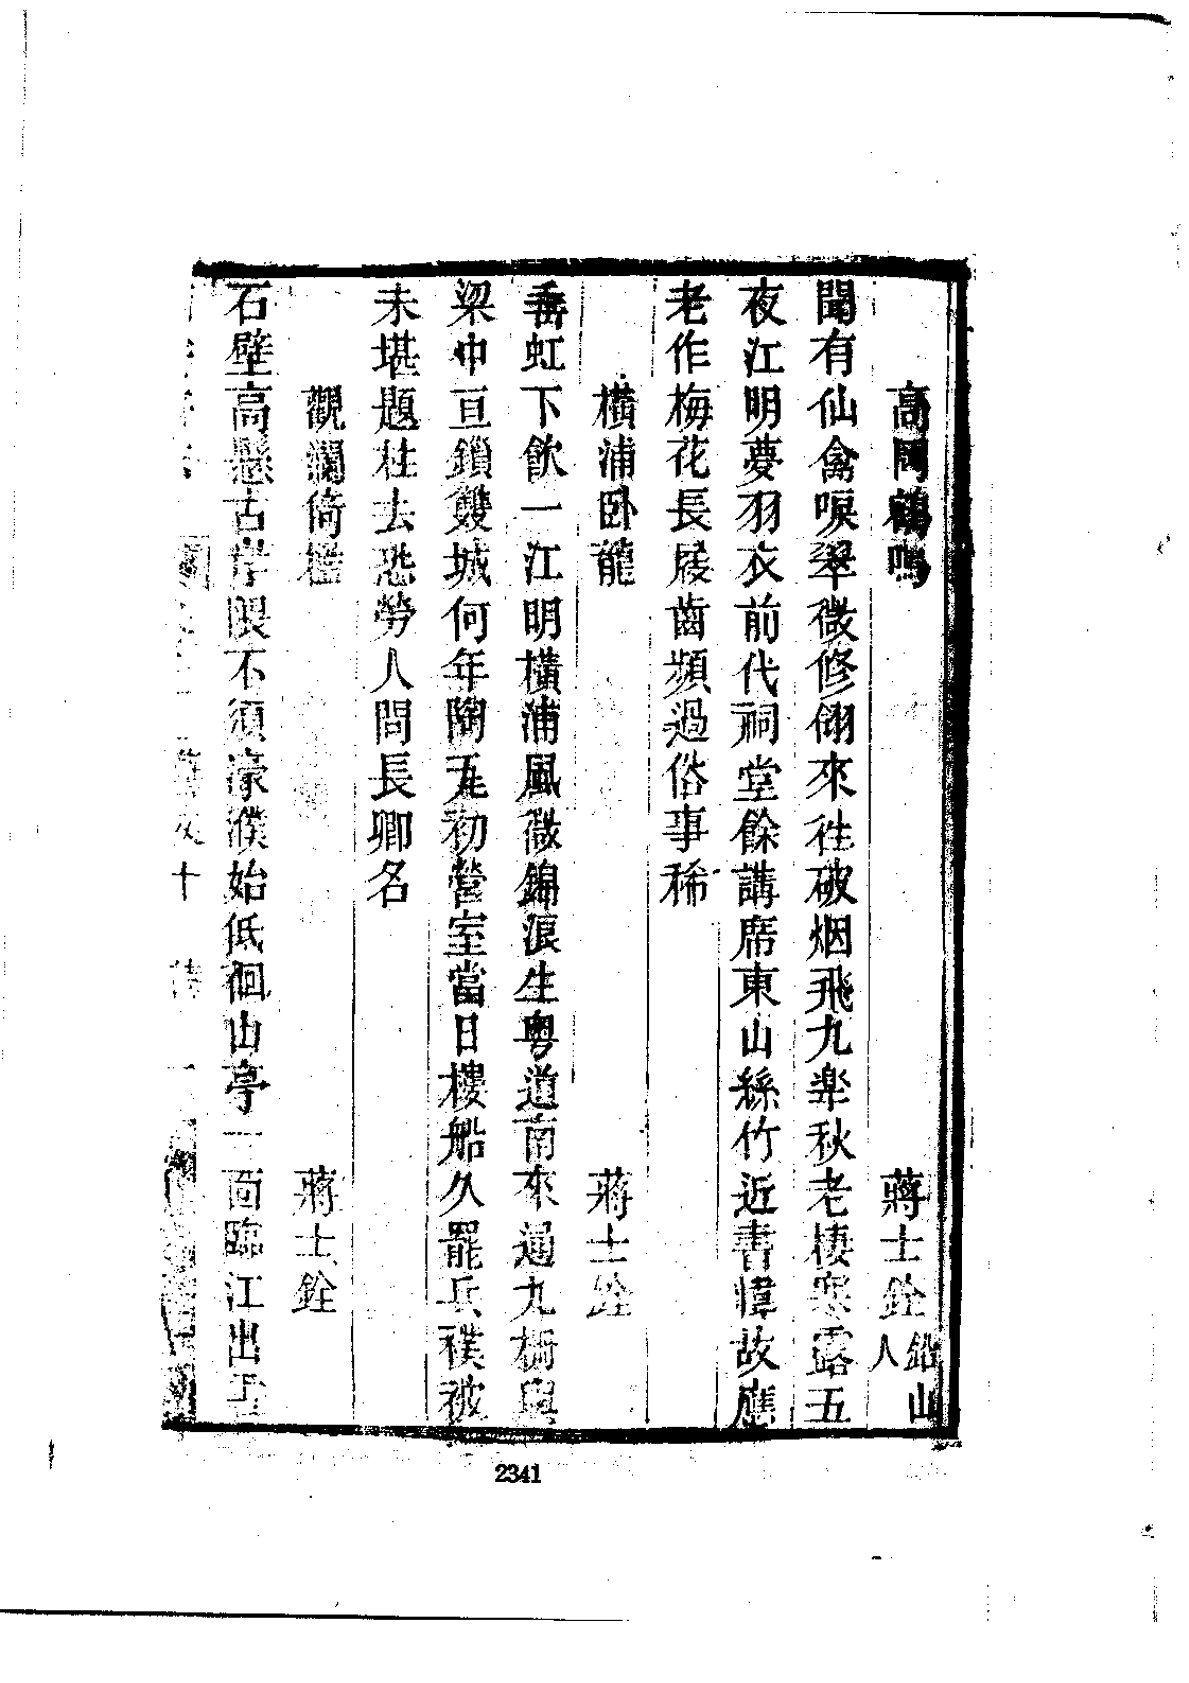 高岡鶴鳴 蔣士銓 鉛山人
聞有仙禽唳翠微修翎來往破烟飛九皋秋老棲寒露五
夜江明夢羽衣前代祠堂餘講席東山絲竹近書幃故應
老作梅花長屐齒頻過俗事稀
橫浦卧龍 蔣士銓
垂虹下飲一江明橫浦風微錦浪生粤道南來通九
梁中亘鎖雙城何年初營室當日樓船久罷兵襆被
未堪題柱去恐勞人問長卿名
觀瀾倚檻 蔣士銓
石壁高懸古岸隈不須濠濮始低徊山亭一面臨江出
十
2341